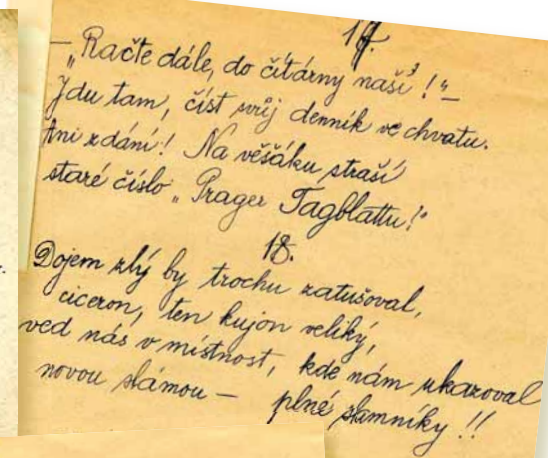 17.
— „Račte dále, do čítárny naší!" —
Jdu tam, číst svůj denník ve chvatu.
Ani zdání! Na věšáku straší
staré číslo „Prager Tagblattu!"
18.
Dojem zlý by trochu zatušoval,
ciceron, ten kujon veliký,
ved nás v místnost, kde nám ukazoval
novou slámou — plné slamníky !!